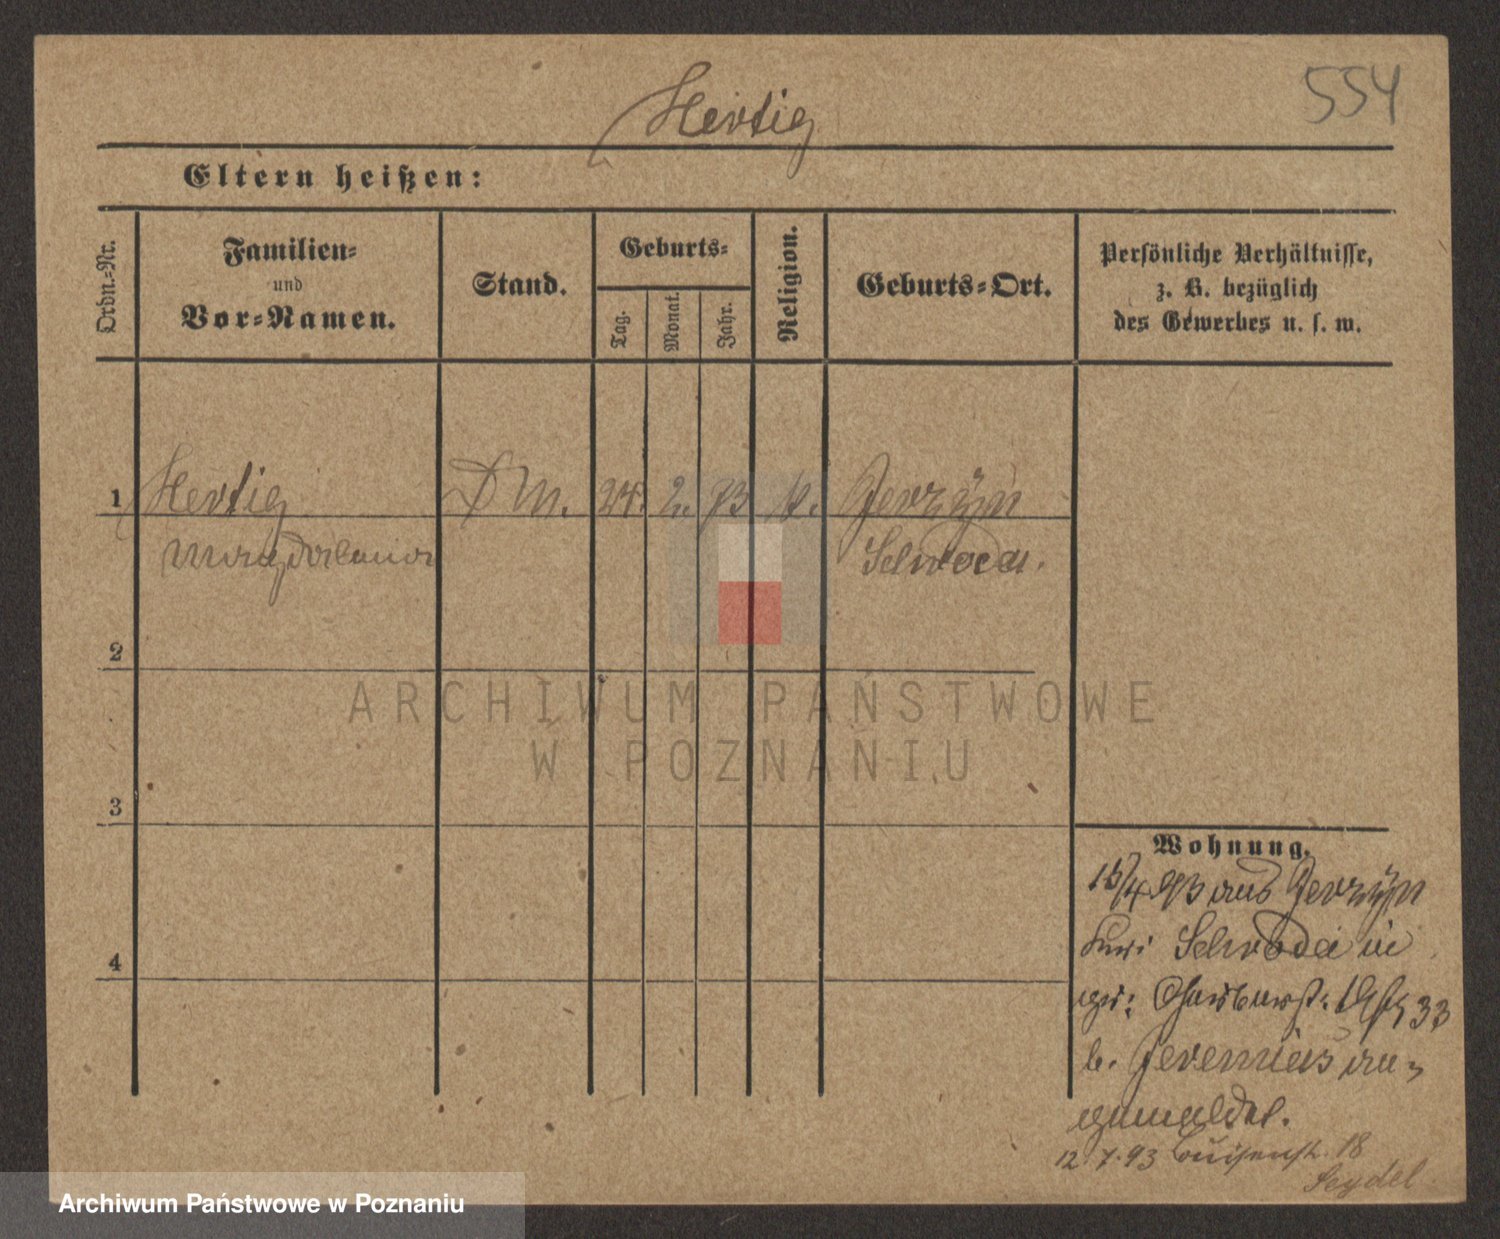 Hertig
554
Eltern heißen:
Ordn.-Nr.
Familien-
und
Vor-Namen.
Stand.
Geburts-
Tag.
Monat.
Jahr.
Religion.
Geburts-Ort.
Persönliche Verhältnisse,
z. B. bezüglich
des Gewerbes u. s. w.
1 Hertig DM. 24. 2. 73 k. Jerzyn
Magdalena Schroda.
2
ARCHIWUM PAŃSTWOWE
W POZNANIU
3
4
Wohnung.
15/4 93 aus Jerzyn
Schroda in
33
b. Jeremias an-
gemeldet.
12.7.93 Luisenstr. 18
Seydel
Archiwum Państwowe w Poznaniu